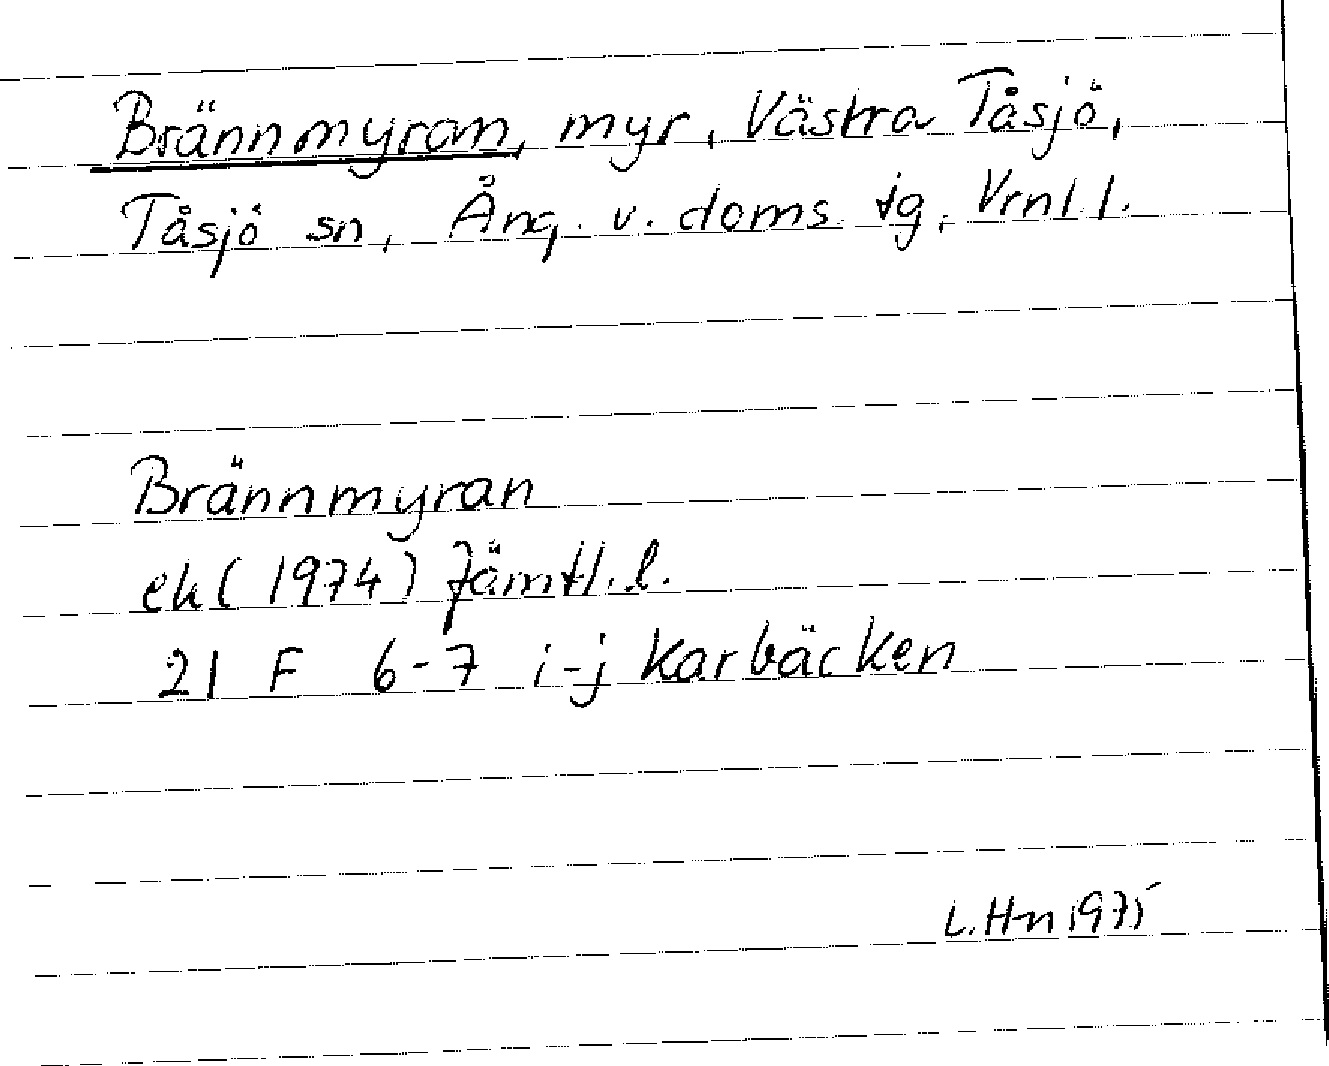 Brännmyran, myr, Västra Tåsjö,
Tåsjö sn, Ång. v. doms. tg, Vrnl l.
Brännmyran
ek (1974) Jämtl. l.
21 F 6-7 i-j Karbäcken
L. H-n 1975